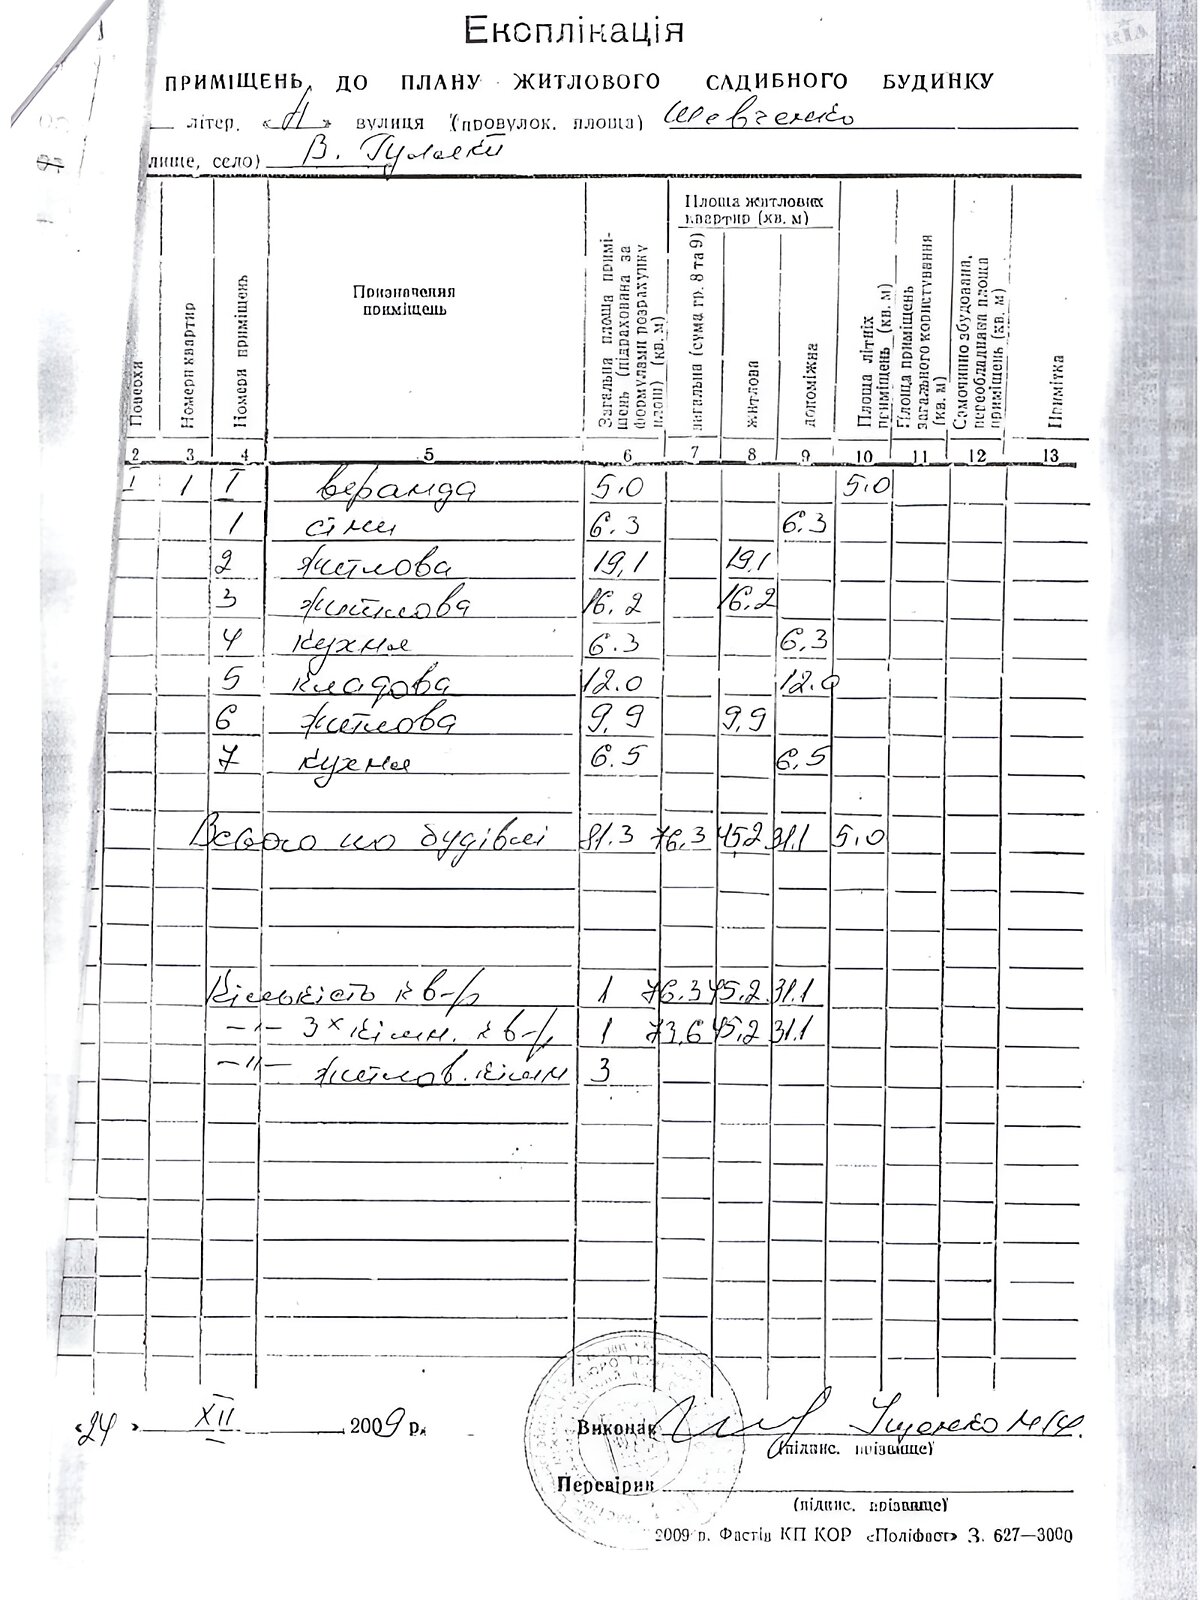 Експлікація
ПРИМІЩЕНЬ ДО ПЛАНУ ЖИТЛОВОГО САДИБНОГО БУДИНКУ
літер. «А» вулиця (провулок, площа) Шевченко
лище, село) В. Гуляки
Поверхи
Номери квартир
Номери приміщень
Призначення приміщень
Загальна площа приміщень (підрахована за формулами розрахунку площ) (кв. м)
Площа житлових квартир (кв. м)
загальна (сума гр. 8 та 9)
житлова
допоміжна
Площа літніх приміщень (кв. м)
Площа приміщень загального користування (кв. м)
Самочинно збудована, переобладнана площа приміщень (кв. м)
Примітка
2 3 4 5 6 7 8 9 10 11 12 13
I 1 I веранда 5.0 5.0
1 сіни 6.3 6.3
2 житлова 19,1 19,1
3 житлова 16.2 16,2
4 кухня 6.3 6,3
5 кладова 12.0 12.0
6 житлова 9,9 9,9
7 кухня 6.5 6,5
Всього по будівлі 81.3 76,3 45,2 31.1 5,0
Кількість кв-р 1 76.3 45,2 31.1
-"- 3х кімн. кв-р 1 73,6 45,2 31.1
-"- житлов. кімн 3
«24» XII 2009 р.
Виконав Іщенко
(підпис, прізвище)
Перевірив
(підпис, прізвище)
2009 р. Фастів КП КОР «Поліфаст» З. 627—3000